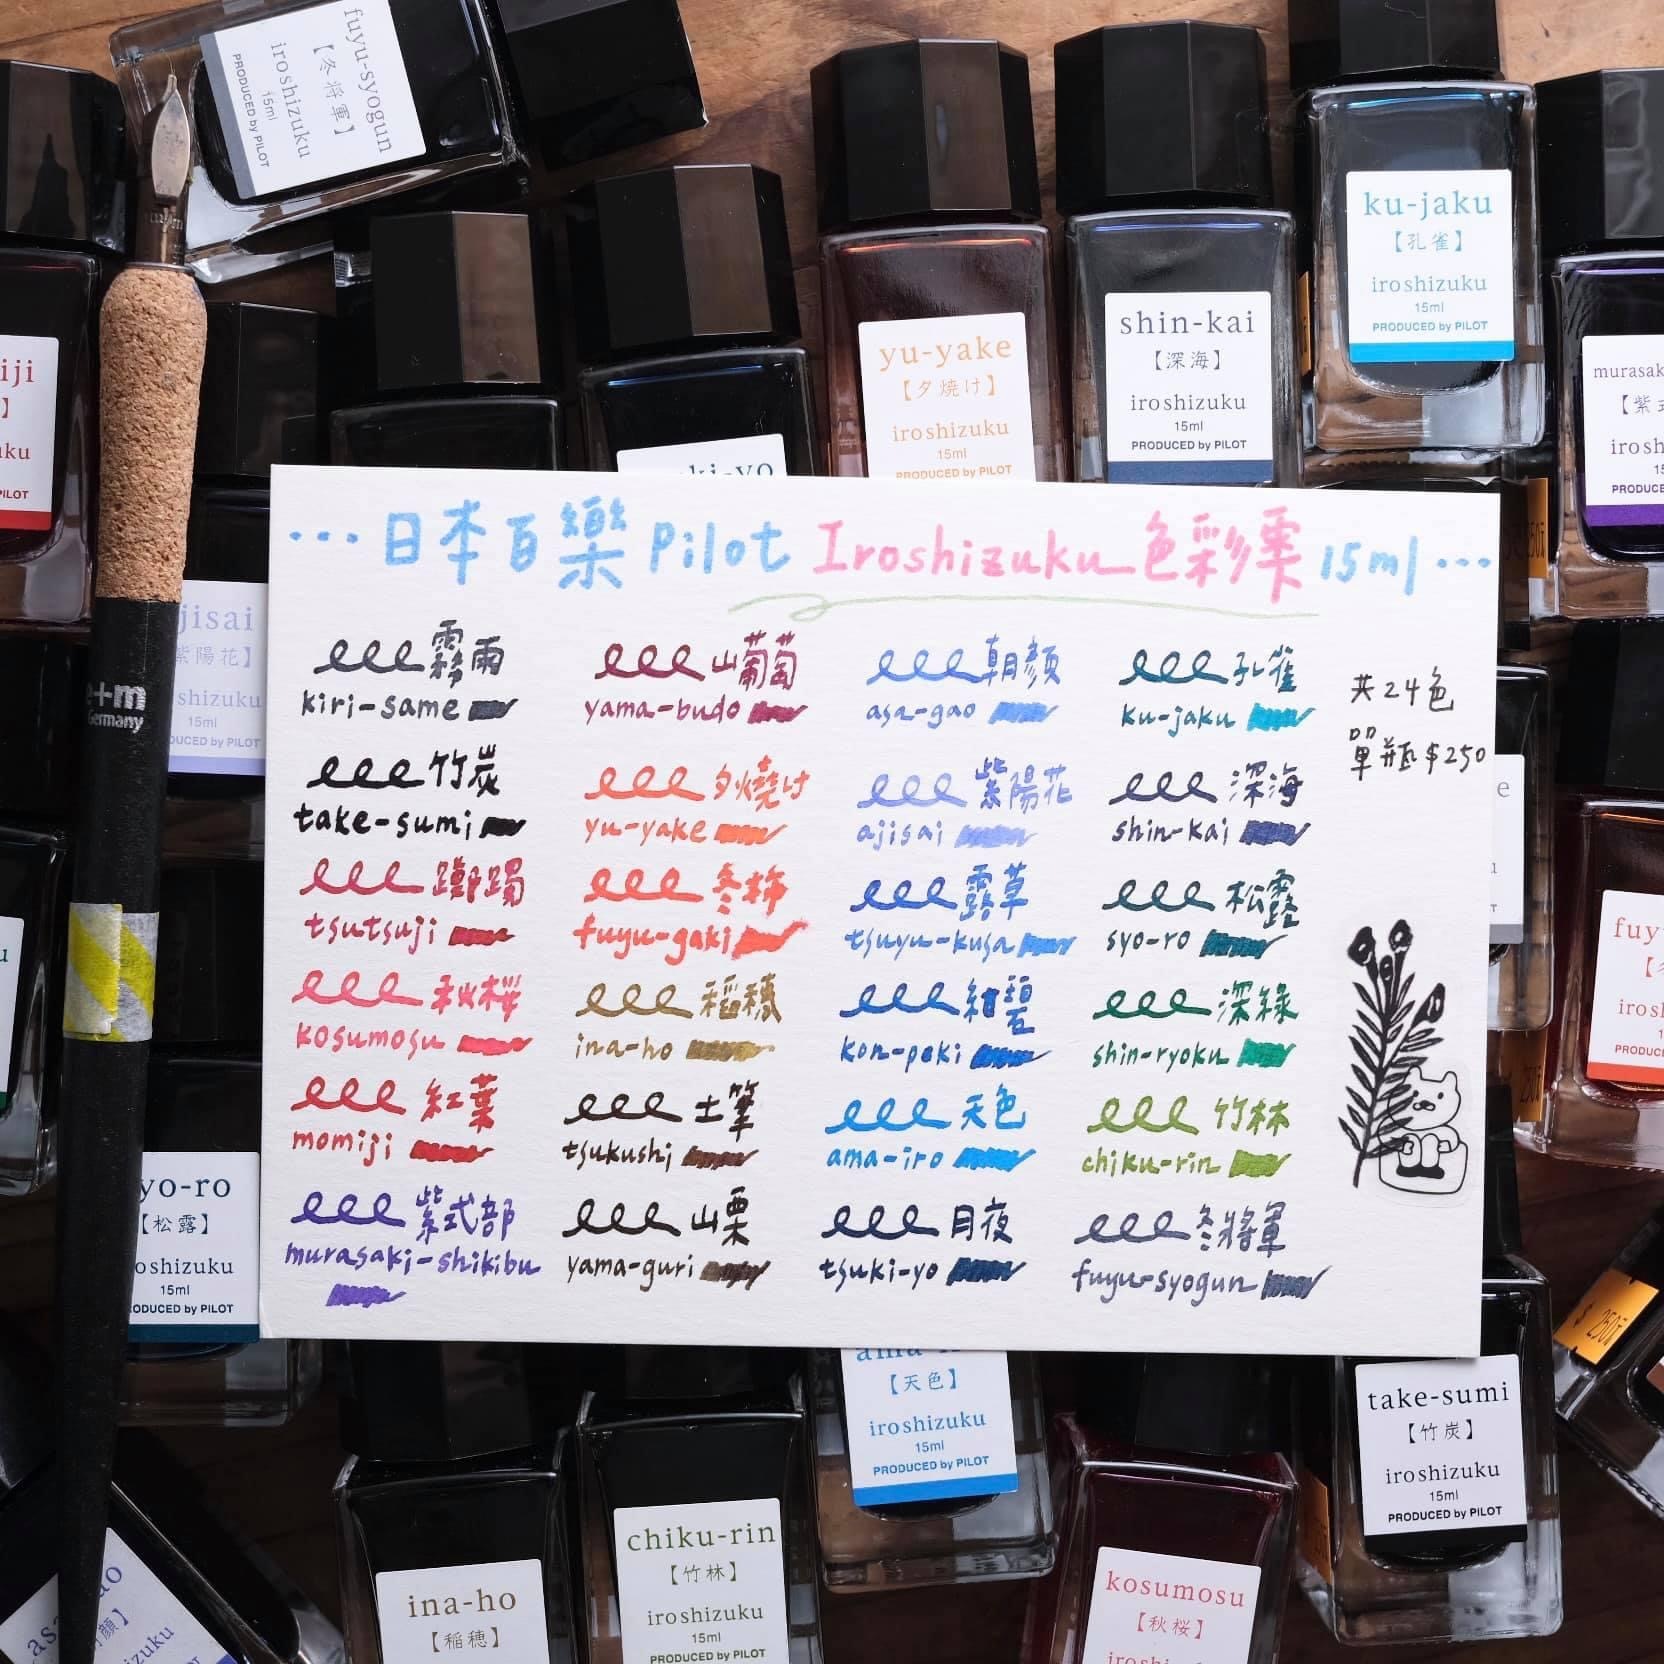 fuyu-syogun
【冬将軍】
iroshizuku
15ml
PRODUCED by PILOT
ku-jaku
【孔雀】
iroshizuku
15ml
PRODUCED by PILOT
shin-kai
【深海】
iroshizuku
15ml
PRODUCED by PILOT
yu-yake
【夕焼け】
iroshizuku
15ml
PRODUCED by PILOT
murasak
【紫式
irosh
PRODUCE
iji
】
uku
PILOT
ki-yo
jisai
紫陽花】
shizuku
15ml
DUCED by PILOT
e+m
Germany
···日本百樂 Pilot Iroshizuku 色彩雫 15ml···
霧雨
kiri-same
竹炭
take-sumi
躑躅
tsutsuji
秋桜
kosumosu
紅葉
momiji
紫式部
murasaki-shikibu
山葡萄
yama-budo
夕燒け
yu-yake
冬柿
fuyu-gaki
稲穂
ina-ho
土筆
tsukushi
山栗
yama-guri
朝顔
asa-gao
紫陽花
ajisai
露草
tsuyu-kusa
紺碧
kon-peki
天色
ama-iro
月夜
tsuki-yo
孔雀
ku-jaku
深海
shin-kai
松露
syo-ro
深緑
shin-ryoku
竹林
chiku-rin
冬將軍
fuyu-syogun
共24色
單瓶$250
fuy
irosh
PRODUCE
yo-ro
【松露】
oshizuku
15ml
ODUCED by PILOT
【天色】
iroshizuku
15ml
PRODUCED by PILOT
take-sumi
【竹炭】
iroshizuku
15ml
PRODUCED by PILOT
chiku-rin
【竹林】
iroshizuku
15ml
PRODUCED by PILOT
ina-ho
【稲穂】
kosumosu
【秋桜】